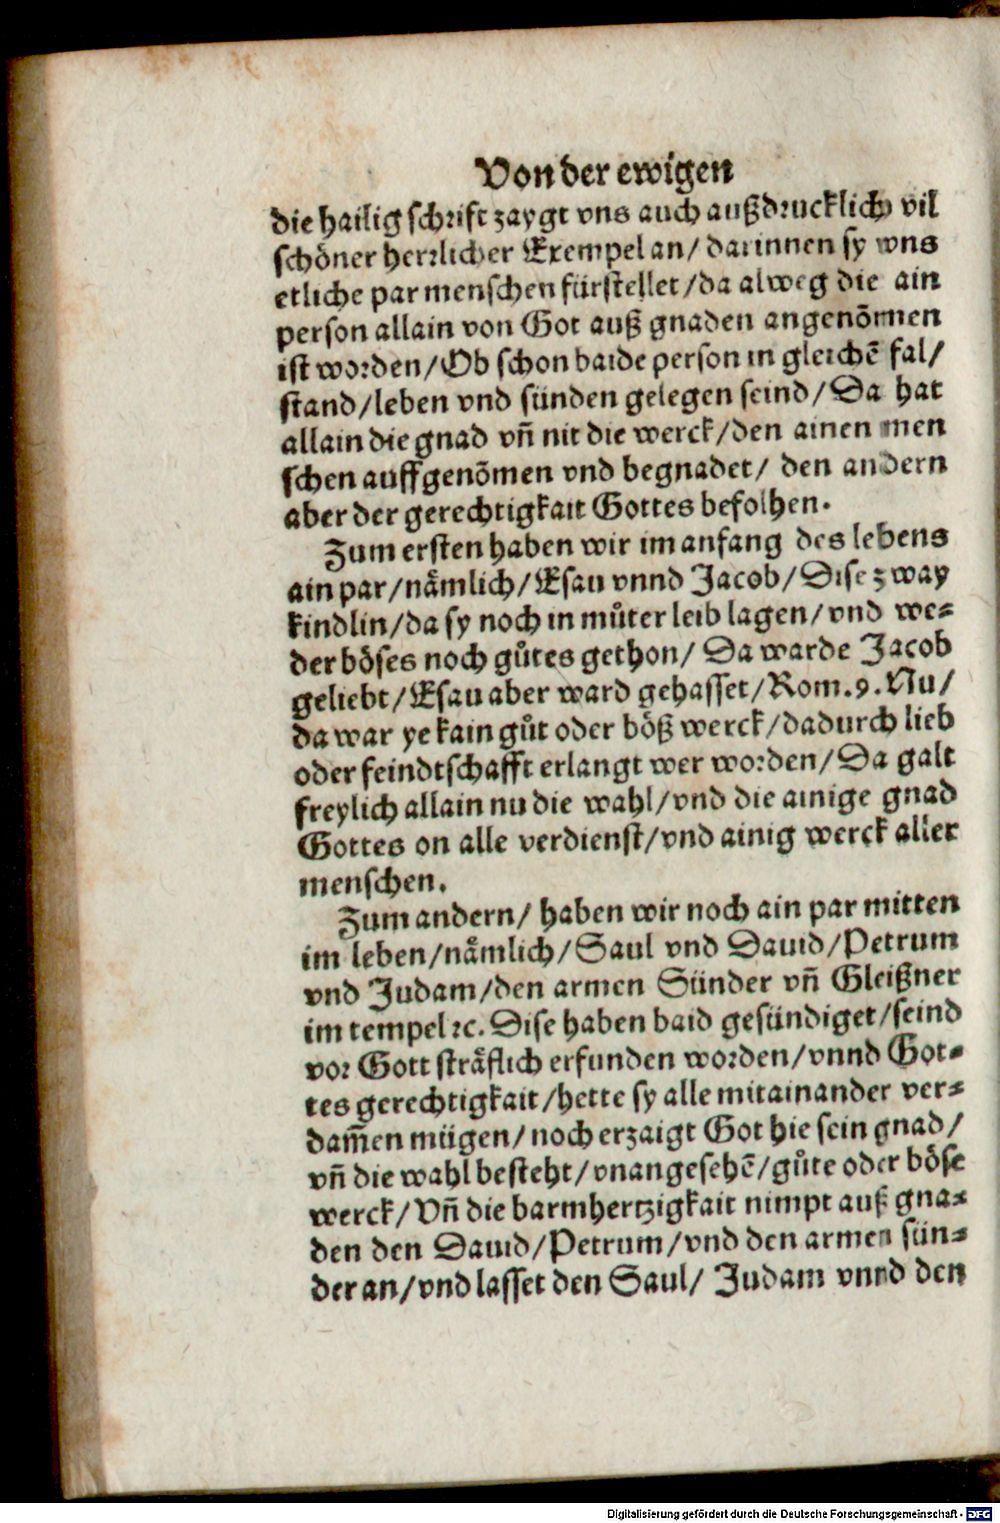 Von der ewigen
die hailig schrift zaygt vns auch außdrucklich vil
schöner herrlicher Exempel an/ darinnen sy wns
etliche par menschen fürstellet/da alweg die ain
person allain von Got auß gnaden angenõmen
ist worden/Ob schon baide person in gleichẽ fal/
stand/leben vnd sünden gelegen seind/Da hat
allain die gnad vñ nit die werck/den ainen men
schen auffgenõmen vnd begnadet/ den andern
aber der gerechtigkait Gottes befolhen.
Zum ersten haben wir im anfang des lebens
ain par/nämlich/Esau vnnd Jacob/Dise zway
kindlin/da sy noch in můter leib lagen/vnd we-
der böses noch gůtes gethon/ Da warde Jacob
geliebt/Esau aber ward gehasset/Rom.9.Nu/
da war ye kain gůt oder böß werck/dadurch lieb
oder feindtschafft erlangt wer worden/Da galt
freylich allain nu die wahl/vnd die ainige gnad
Gottes on alle verdienst/vnd ainig werck aller
menschen.
Zum andern/ haben wir noch ain par mitten
im leben/nämlich/Saul vnd Dauid/Petrum
vnd Judam/den armen Sünder vñ Gleißner
im tempel ꝛc. Dise haben baid gesündiget/seind
vor Gott sträflich erfunden worden/vnnd Got-
tes gerechtigkait/hette sy alle mitainander ver-
dam̃en mügen/noch erzaigt Got hie sein gnad/
vñ die wahl besteht/vnangesehẽ/gůte oder böse
werck/Vñ die barmhertzigkait nimpt auß gna-
den den Dauid/Petrum/vnd den armen sün-
der an/vnd lasset den Saul/ Judam vnnd den
Digitalisierung gefördert durch die Deutsche Forschungsgemeinschaft - DFG